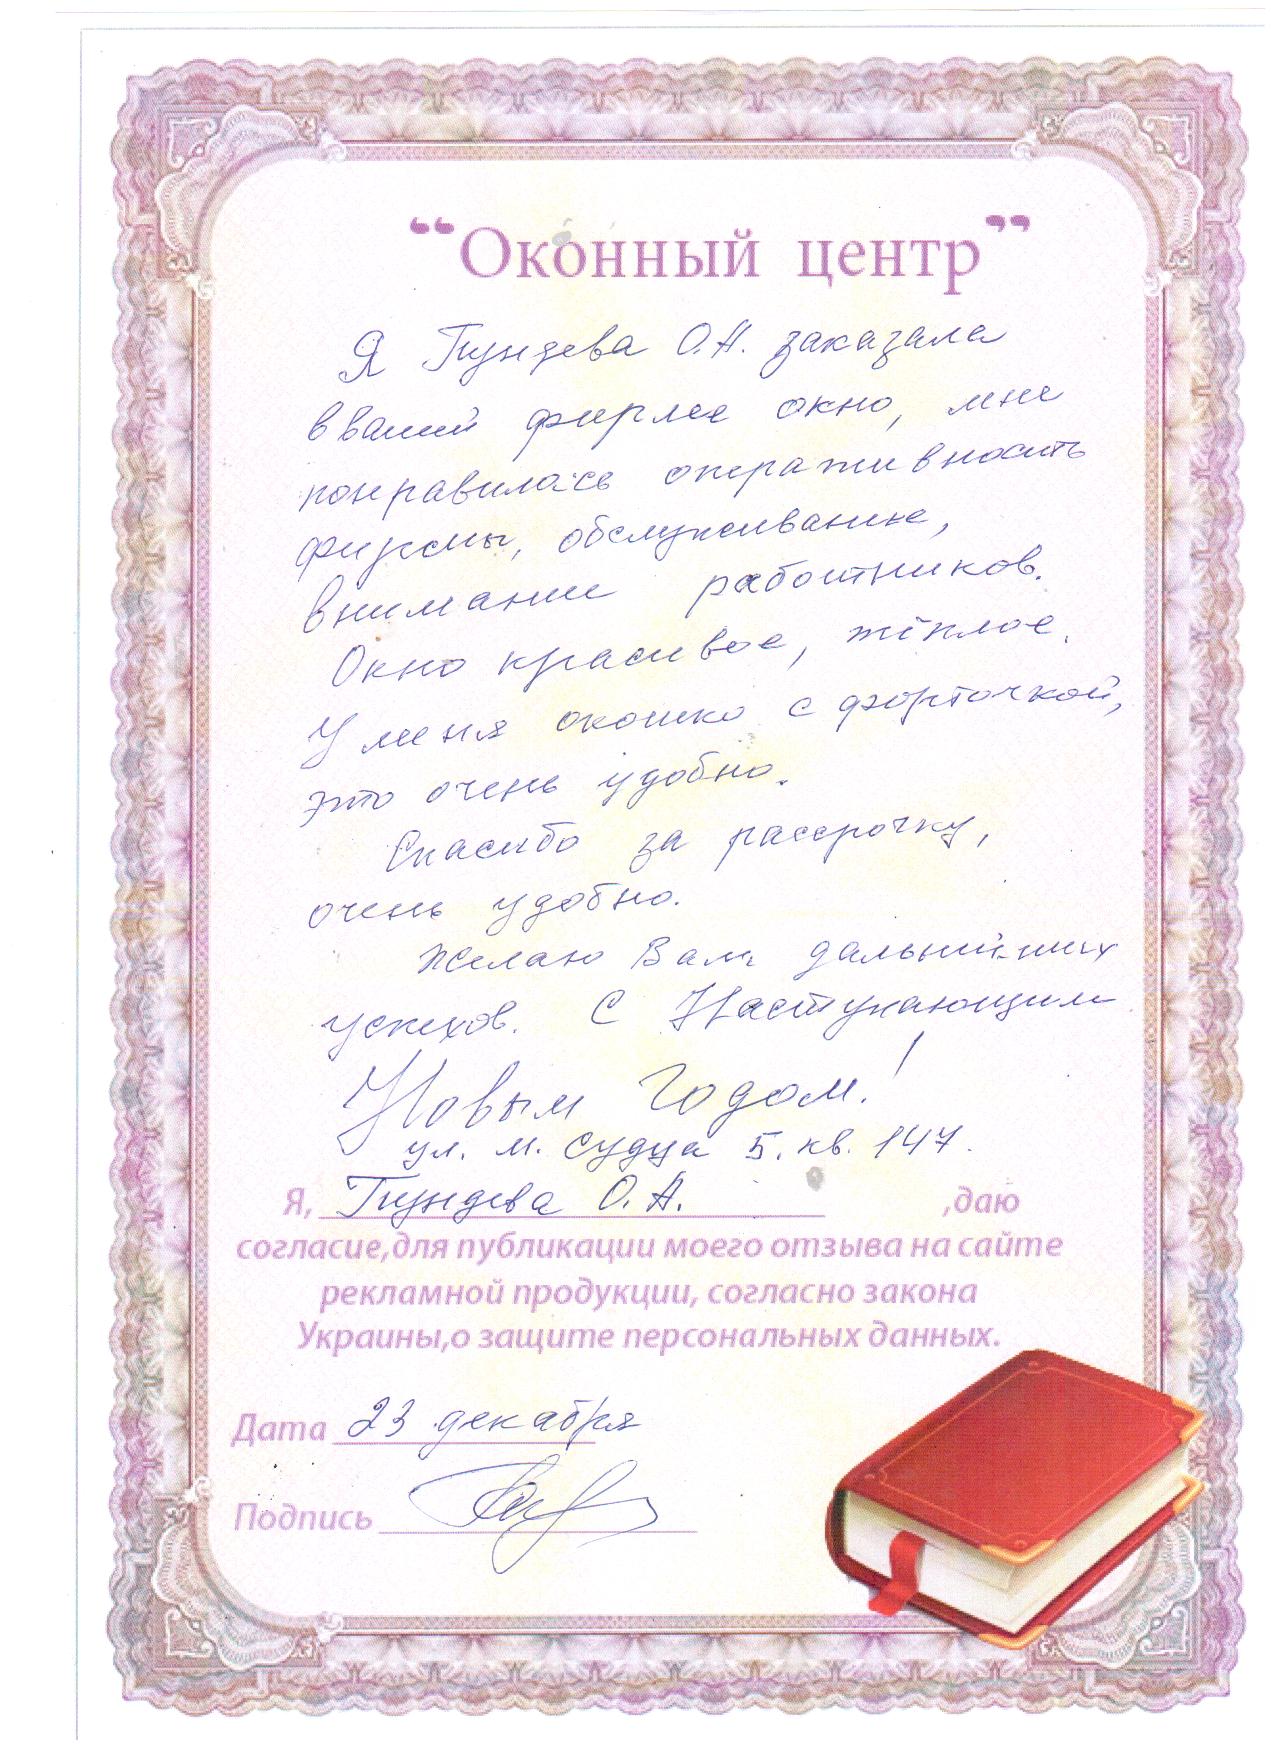 “Оконный центр”
Я Пундева О.А. заказала
в вашей фирме окно, мне
понравилась оперативность
фирмы, обслуживание,
внимание работников.
Окно красивое, тёплое.
У меня окошко с форточкой,
это очень удобно.
Спасибо за рассрочку,
очень удобно.
Желаю Вам дальнейших
успехов. С Наступающим
Новым годом!
ул. м. Судца 5. кв. 147.
Я, Пундева О.А. ,даю
согласие,для публикации моего отзыва на сайте
рекламной продукции, согласно закона
Украины,о защите персональных данных.
Дата 23 декабря
Подпись